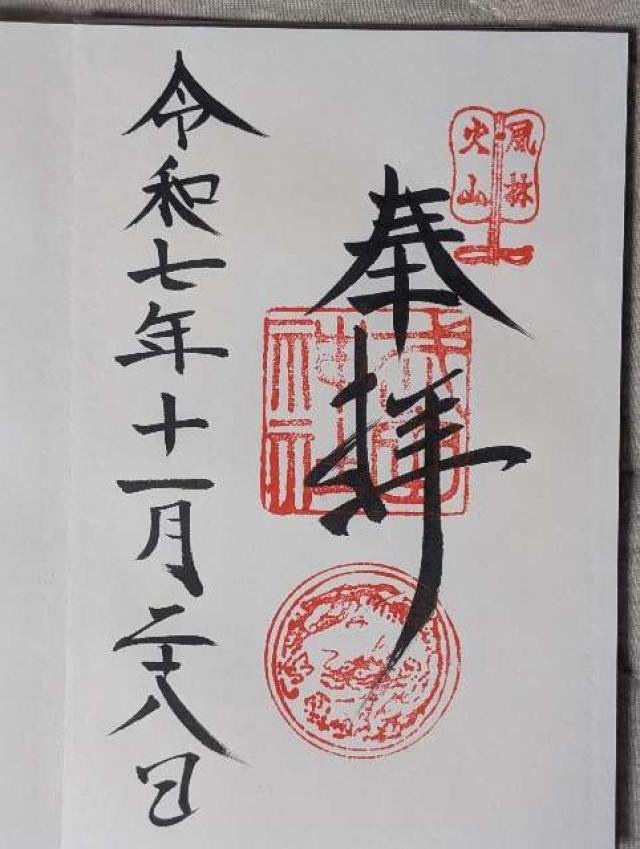 風林
火山
奉拝
武田
神社
令和七年十一月二十八日